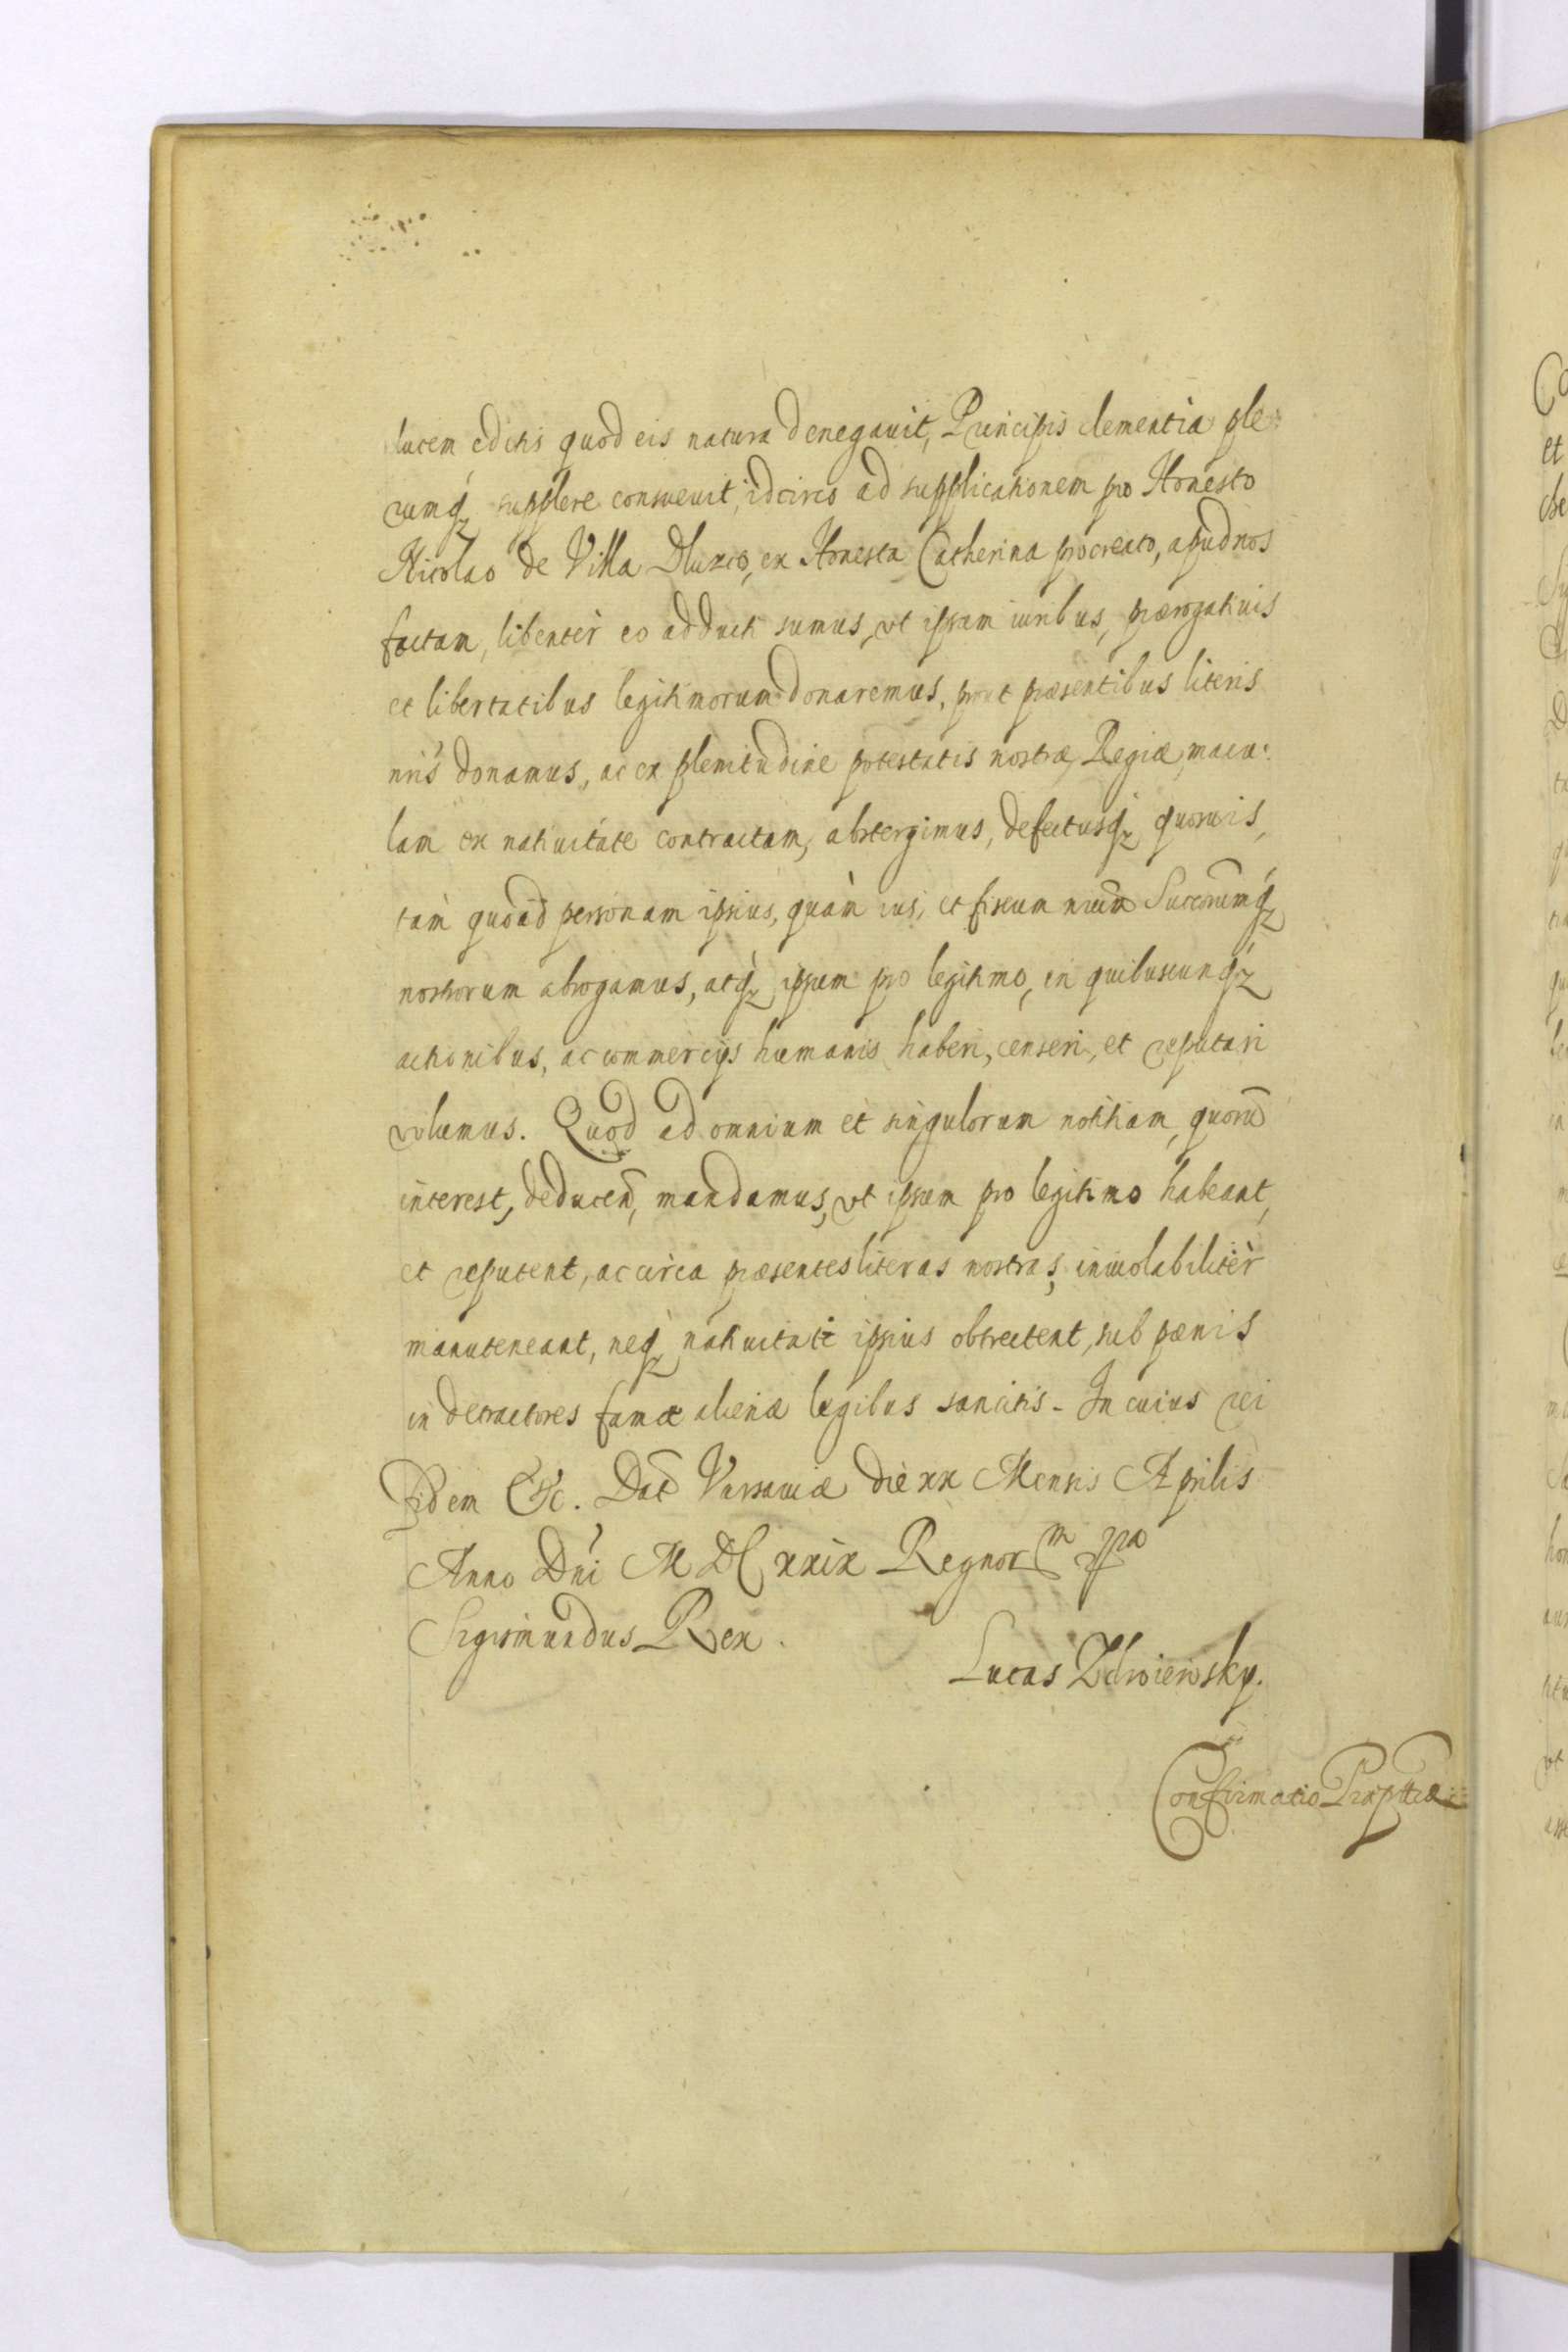 lucem editis quod eis natura denegauit, Principis clementia ple:
rumq́ supplere consueuit, idcirco ad supplicationem pro Honesto
Nicolao de Villa Dluzco, ex Honesta Catherina procreato, apud nos
factam, libentèr eo adducti sumus, vt ipsum iuribus, prærogatiuis
et libertatibus legitimorum donaremus, prout præsentibus literis
nris donamus, ac ex plenitudine potestatis nostræ Regiæ, macu:
lam ex natiuitate contractam, abstergimus, defectusq́ quosuis,
tàm quoad personam ipsius, quàm ius, et fiscum nrum Succrumq́
nostrorum abrogamus, atq́ ipsum pro legitimo, in quibuscunq́
actionibus, ac commercijs humanis haberi, censeri, et reputari
volumus. Quod ad omnium et singulorum notitiam, quorū
interest, deducen, mandamus, vt ipsum pro legitimo habeant,
et reputent, ac circa præsentes literas nostras, inuiolabilitèr
manuteneant, neq́ natiuitati ipsius obtrectent, sub pænis
in detractores famæ alienæ legibus sancitis. In cuius rei
fidem &c. Dat Varsauiæ die xx Mensis Aprilis
Anno Dni M DC xxix Regnor m
Sigismundus Rex.
Lucas
Confirmatio